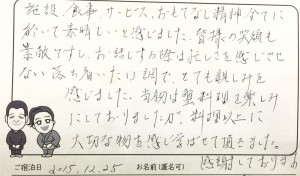 施設、食事、サービス、おもてなし精神全てに
於いて素晴しいと感じました。皆様の笑顔も
素敵ですし、お話しする際は忙しさを感じさせ
ない落ち着いた口調で、とても親しみを
感じました。当初は蟹料理を楽しみ
にしておりましたが、料理以上に
大切な物を感じ学ばせて頂きました。
感謝しております
ご宿泊日 2015.12.25 お名前(匿名可)